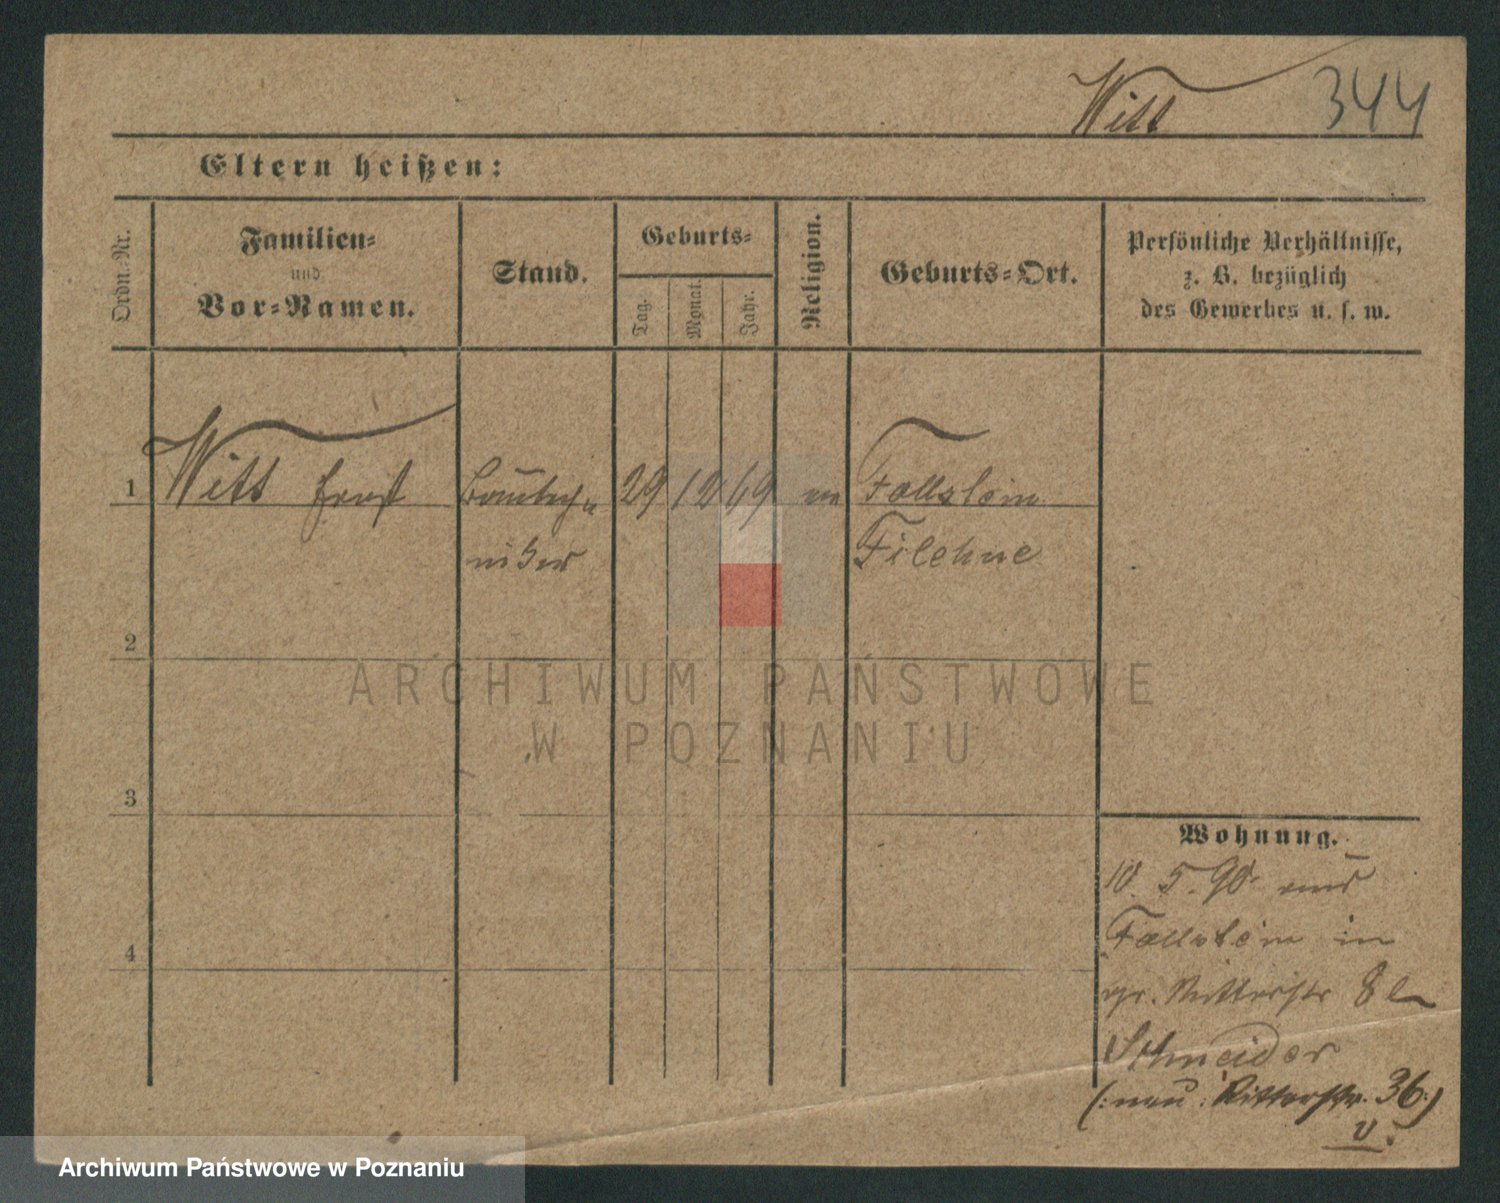 Witt 344
Eltern heißen:
Ordn.-Nr.
Familien-
und
Vor-Namen.
Stand.
Geburts-
Tag.
Monat.
Jahr.
Religion.
Geburts-Ort.
Persönliche Verhältnisse,
z. B. bezüglich
des Gewerbes u. s. w.
1 Witt Ernst Bautech- 29 12 69 ev Fallstein
niker Filehne
2
3
4
Wohnung.
10. 5. 90 aus
Fallstein in
gr. Ritterstr 8
Schneider
(: neu: Ritterstr. 36:)
v.
ARCHIWUM PAŃSTWOWE
W POZNANIU
Archiwum Państwowe w Poznaniu